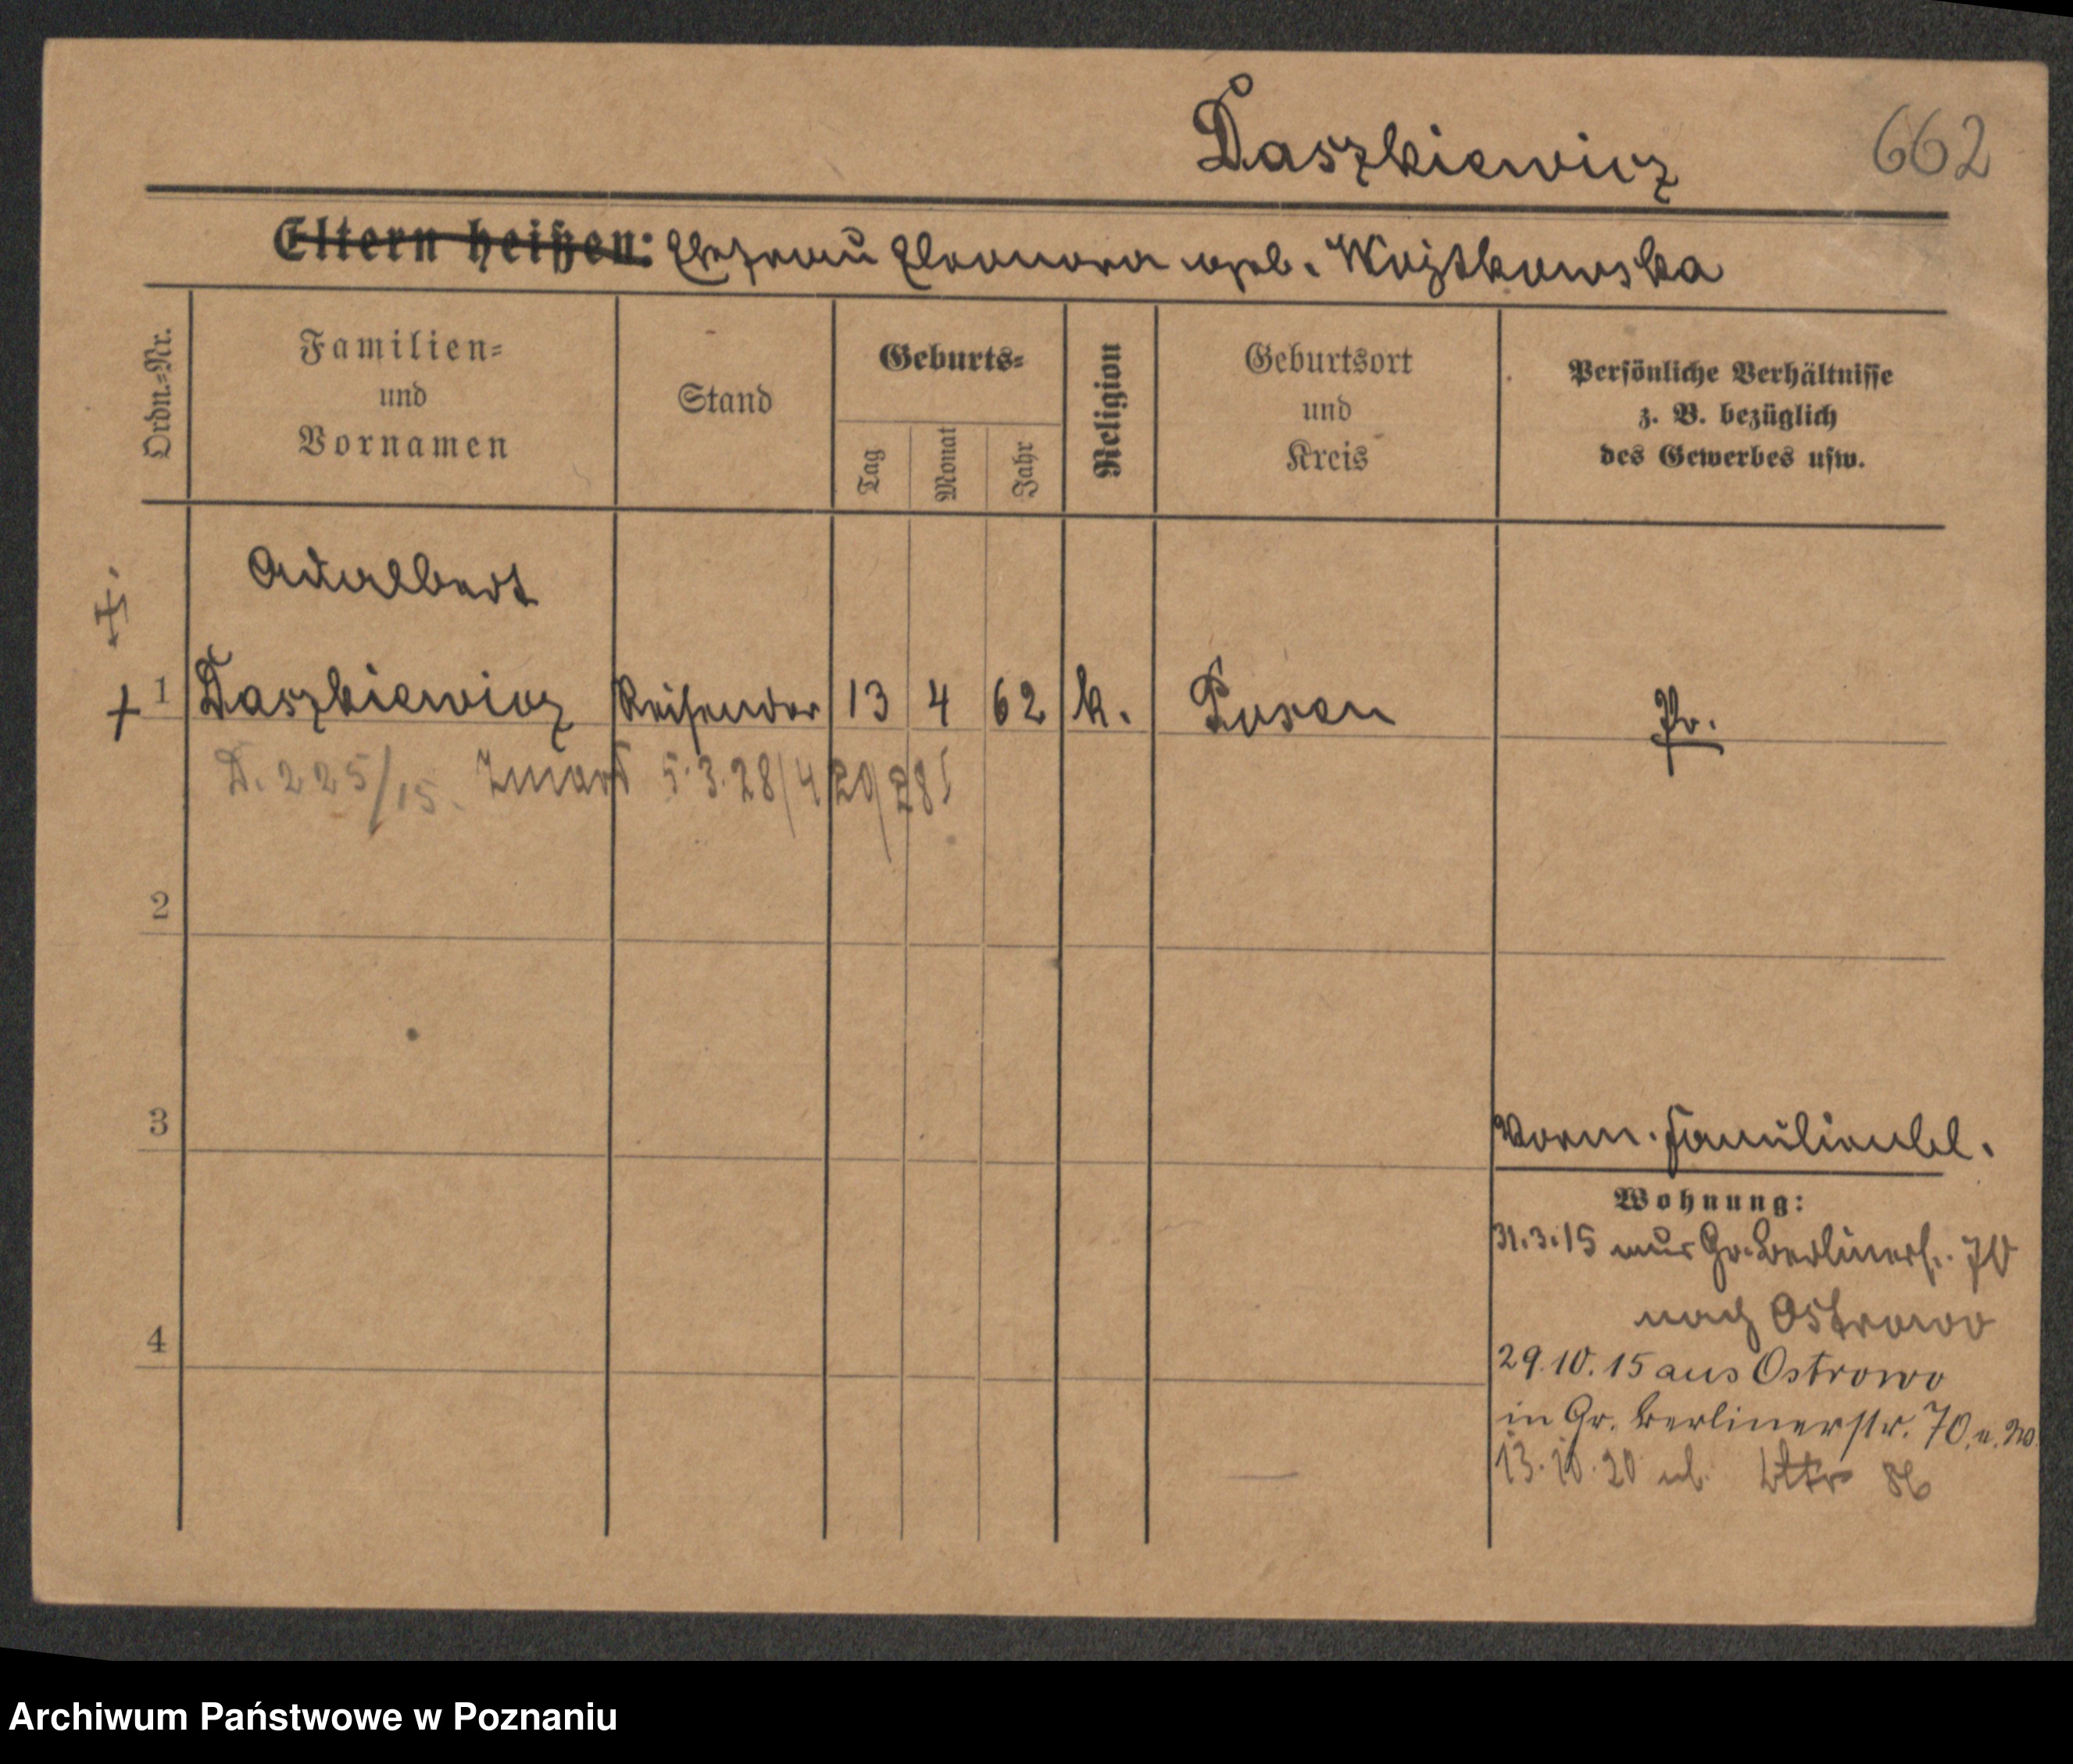 Daszkiewicz
662
Eltern heißen: Ehefrau Eleonora geb. Wojtkowska
Ordn.=Nr.
Familien=
und
Vornamen
Stand
Geburts=
Tag
Monat
Jahr
Religion
Geburtsort
und
Kreis
Persönliche Verhältnisse
z. B. bezüglich
des Gewerbes usw.
Adalbert
1 Daszkiewicz Reisender 13 4 62 k. Posen Pr.
D. 225/15. Zmarł 5.3.28
2
3
Vorm. Familienbl.
Wohnung:
31.3.15 aus Gr. Berlinerstr. 70
nach Ostrowo
4
29.10.15 aus Ostrowo
in Gr. Berlinerstr. 70
13.10.20 ul.
Archiwum Państwowe w Poznaniu